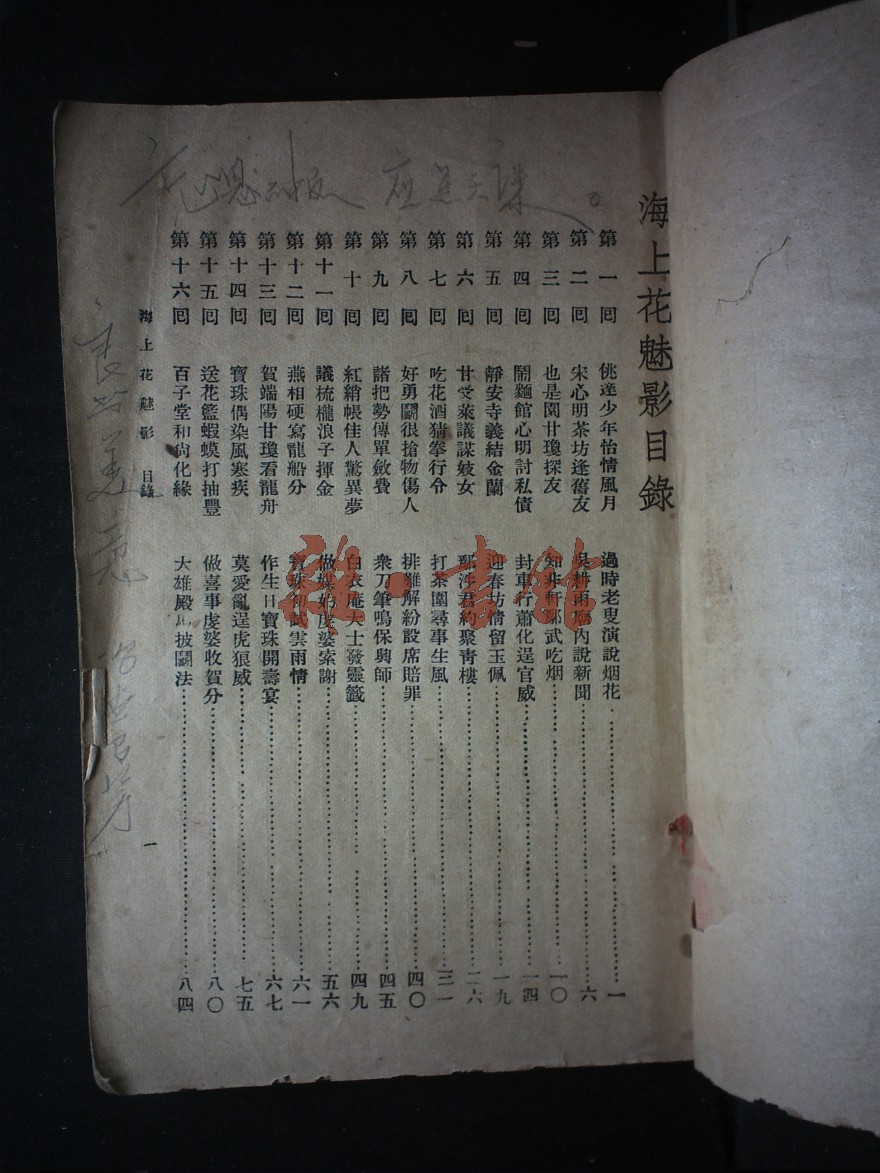 海上花魅影目錄
第一回 佻達少年怡情風月 過時老叟演說烟花 一
第二回 宋心明茶坊逢舊友 吳耕雨廊內說新聞 六
第三回 也是園甘瓊探友 知非軒鄭武吃烟 一〇
第四回 鬧麵館心明討私債 封車行蕭化逞官威 一四
第五回 靜安寺義結金蘭 迎春坊情留玉佩 一九
第六回 甘受藥議謀妓女 約聚青樓 二六
第七回 吃花酒猜拳行令 打茶圍尋事生風 三一
第八回 好勇鬭很搶物傷人 排難解紛設席賠罪 四〇
第九回 諸把勢傳單斂費 衆刀筆鳴保興師 四五
第十回 紅綃帳佳人驚異夢 白衣庵大士發靈籤 四九
第十一回 議梳櫳浪子揮金 做媒妁虔婆索謝 五六
第十二回 燕相硬寫龍船分 寶珠初試雲雨情 六一
第十三回 賀端陽甘瓊看龍舟 作生日寶珠開壽宴 六七
第十四回 寶珠偶染風寒疾 莫愛亂逞虎狼威 七五
第十五回 送花籃蝦蟆打抽豐 做喜事虔婆收賀分 八〇
第十六回 百子堂和尚化緣 大雄殿馬披鬭法 八四
海上花魅影 目錄 一